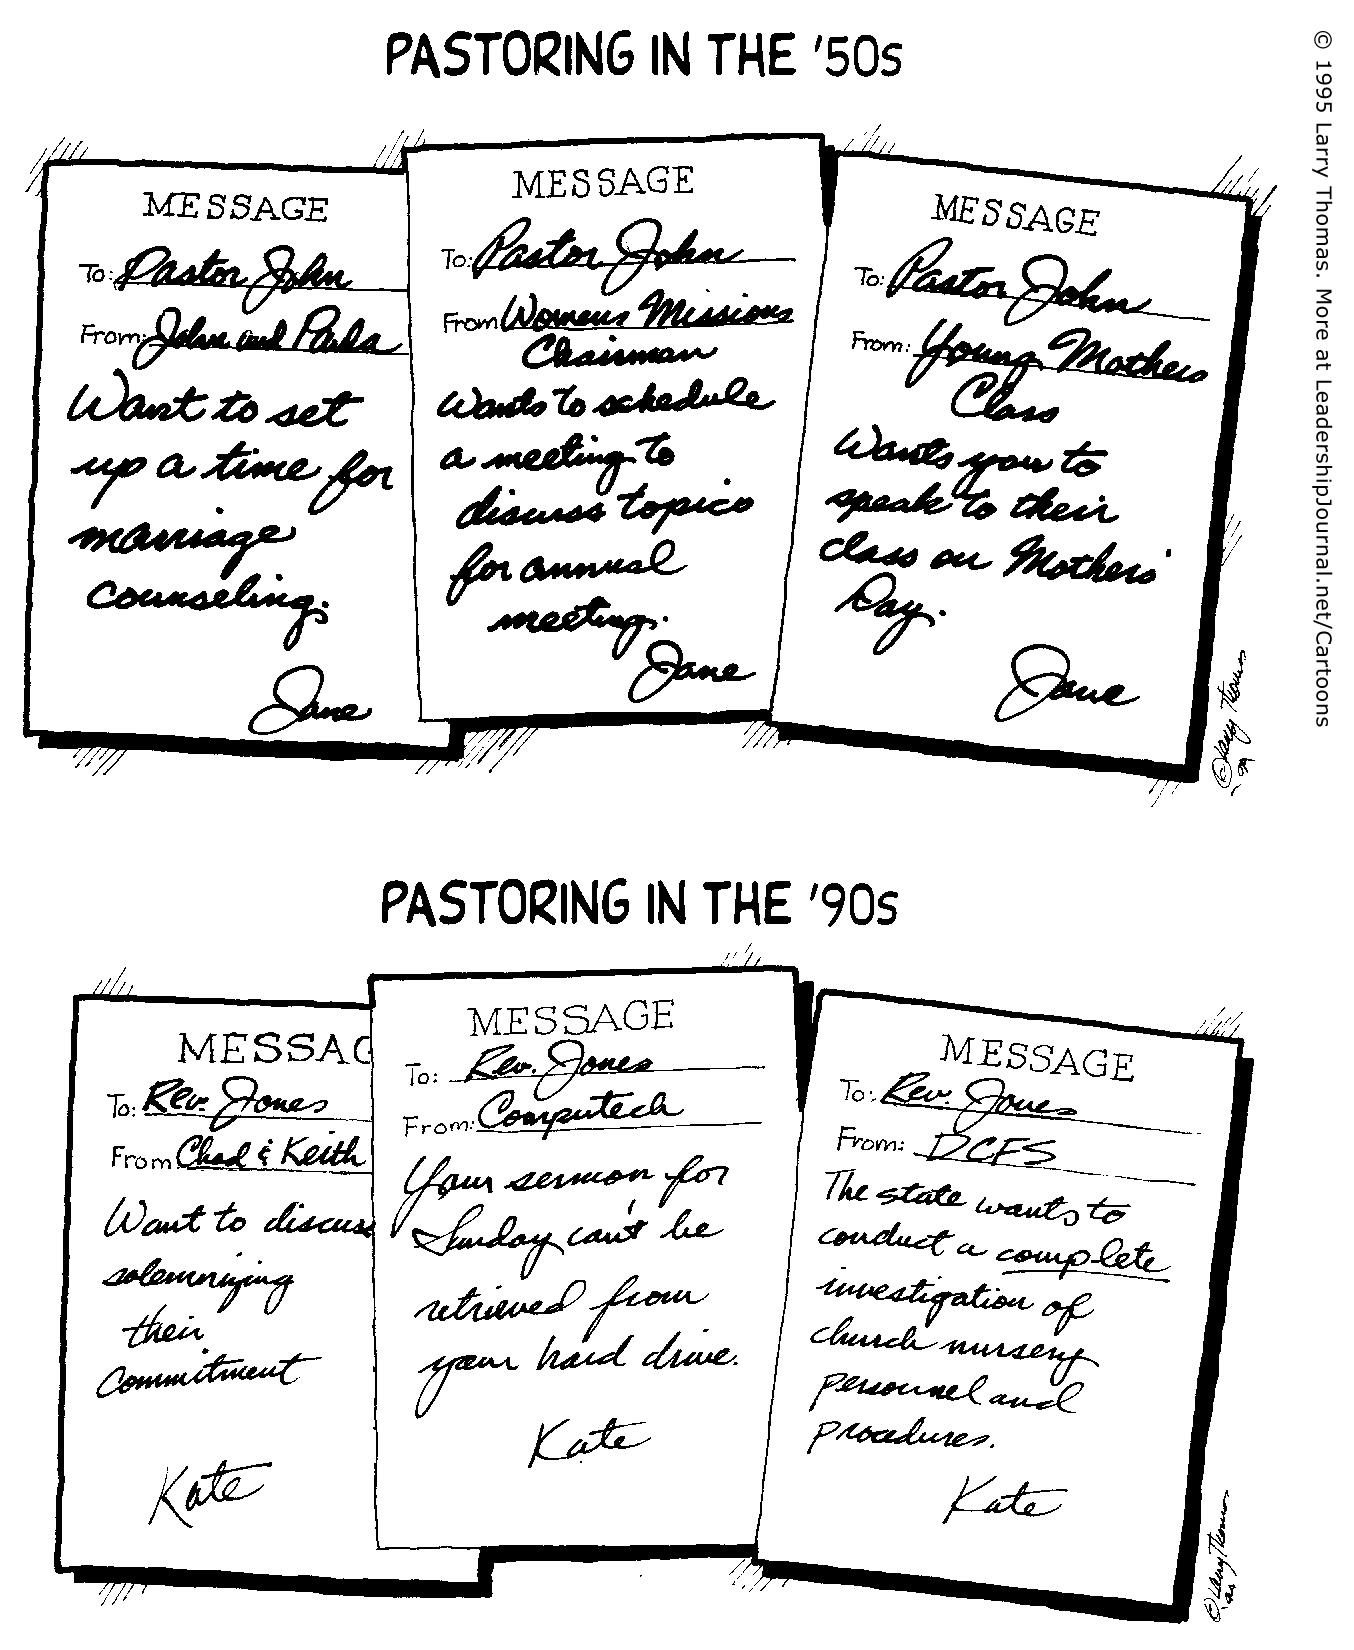 PASTORING IN THE '50s
MESSAGE
To: Pastor John
From: John and Paula
Want to set
up a time for
marriage
counseling.
Jane
MESSAGE
To: Pastor John
From Womens Missions
Chairman
Wants to schedule
a meeting to
discuss topics
for annual
meeting.
Jane
MESSAGE
To: Pastor John
From: Young Mothers
Class
Wants you to
speak to their
class on Mothers'
Day.
Jane
© Larry Thomas
© 1995 Larry Thomas. More at LeadershipJournal.net/Cartoons
PASTORING IN THE '90s
MESSAG
To: Rev. Jones
From Chad & Keith
Want to discuss
solemnizing
their
commitment
Kate
MESSAGE
To: Rev. Jones
From: Computech
Your sermon for
Sunday can't be
retrieved from
your hard drive.
Kate
MESSAGE
To: Rev. Jones
From: DCFS
The state wants to
conduct a complete
investigation of
church nursery
personnel and
procedures.
Kate
© Larry Thomas